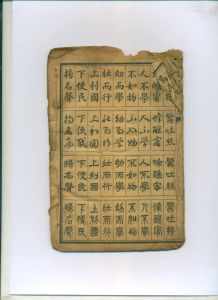 蠶吐絲 蠶吐絲 蠶吐絲 蠶吐絲
蜂釀蜜 蜂釀蜜 蜂釀蜜 蜂釀蜜
人不學 人不學 人不學 人不學
不如物 不如物 不如物 不如物
幼而學 幼而學 幼而學 幼而學
壯而行 壯而行 壯而行 壯而行
上利國 上利國 上利國 上利國
下便民 下便民 下便民 下便民
揚名聲 揚名聲 揚名聲 揚名聲